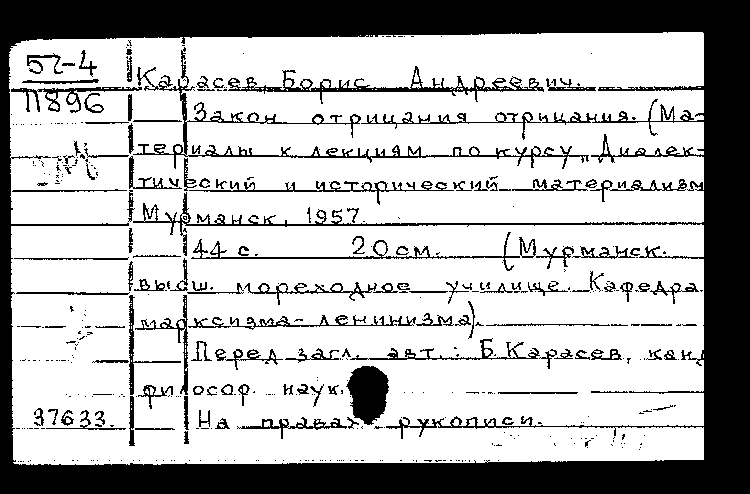 57-4
П896
Карасев, Борис Андреевич.
Закон отрицания отрицания. (Ма-
териалы к лекциям по курсу „Диалек-
тический и исторический материализм
Мурманск, 1957.
44 с. 20 см. (Мурманск.
высш. мореходное училище. Кафедра
марксизма-ленинизма).
Перед загл. авт.: Б. Карасев, канд
филосор. наук.
37633. На правах рукописи.